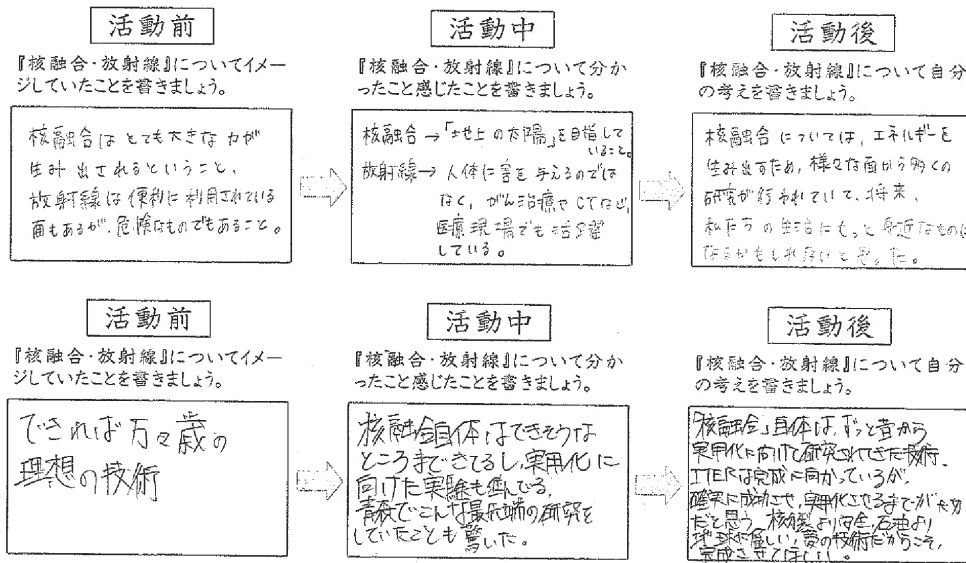 活動前
『核融合・放射線』についてイメー
ジしていたことを書きましょう。
核融合はとても大きな力が
生み出されるということ、
放射線は便利に利用されている
面もあるが、危険なものでもあること。
活動中
『核融合・放射線』について分か
ったこと感じたことを書きましょう。
核融合→「地上の太陽」を目指して
いること。
放射線→人体に害を与えるのでは
なく、がん治療やCTなど、
医療現場でも活躍
している。
活動後
『核融合・放射線』について自分
の考えを書きましょう。
核融合については、エネルギーを
生み出すため、様々な面から多くの
研究が行われていて、将来、
私たちの生活にもっと身近なものに
なるかもしれないと思った。
活動前
『核融合・放射線』についてイメー
ジしていたことを書きましょう。
できれば万々歳の
理想の技術
活動中
『核融合・放射線』について分か
ったこと感じたことを書きましょう。
核融合自体はできそうな
ところまできてるし、実用化に
向けた実験も進んでる。
青森でこんな最先端の研究を
していたことも驚いた。
活動後
『核融合・放射線』について自分
の考えを書きましょう。
「核融合」自体は、ずっと昔から
実用化に向けて研究されてきた技術。
ITERは完成に向かっているが、
確実に成功させ、実用化させるまでが大切
だと思う。核分裂より安全、石油より
地球に優しい、夢の技術だからこそ、
完成させてほしい。